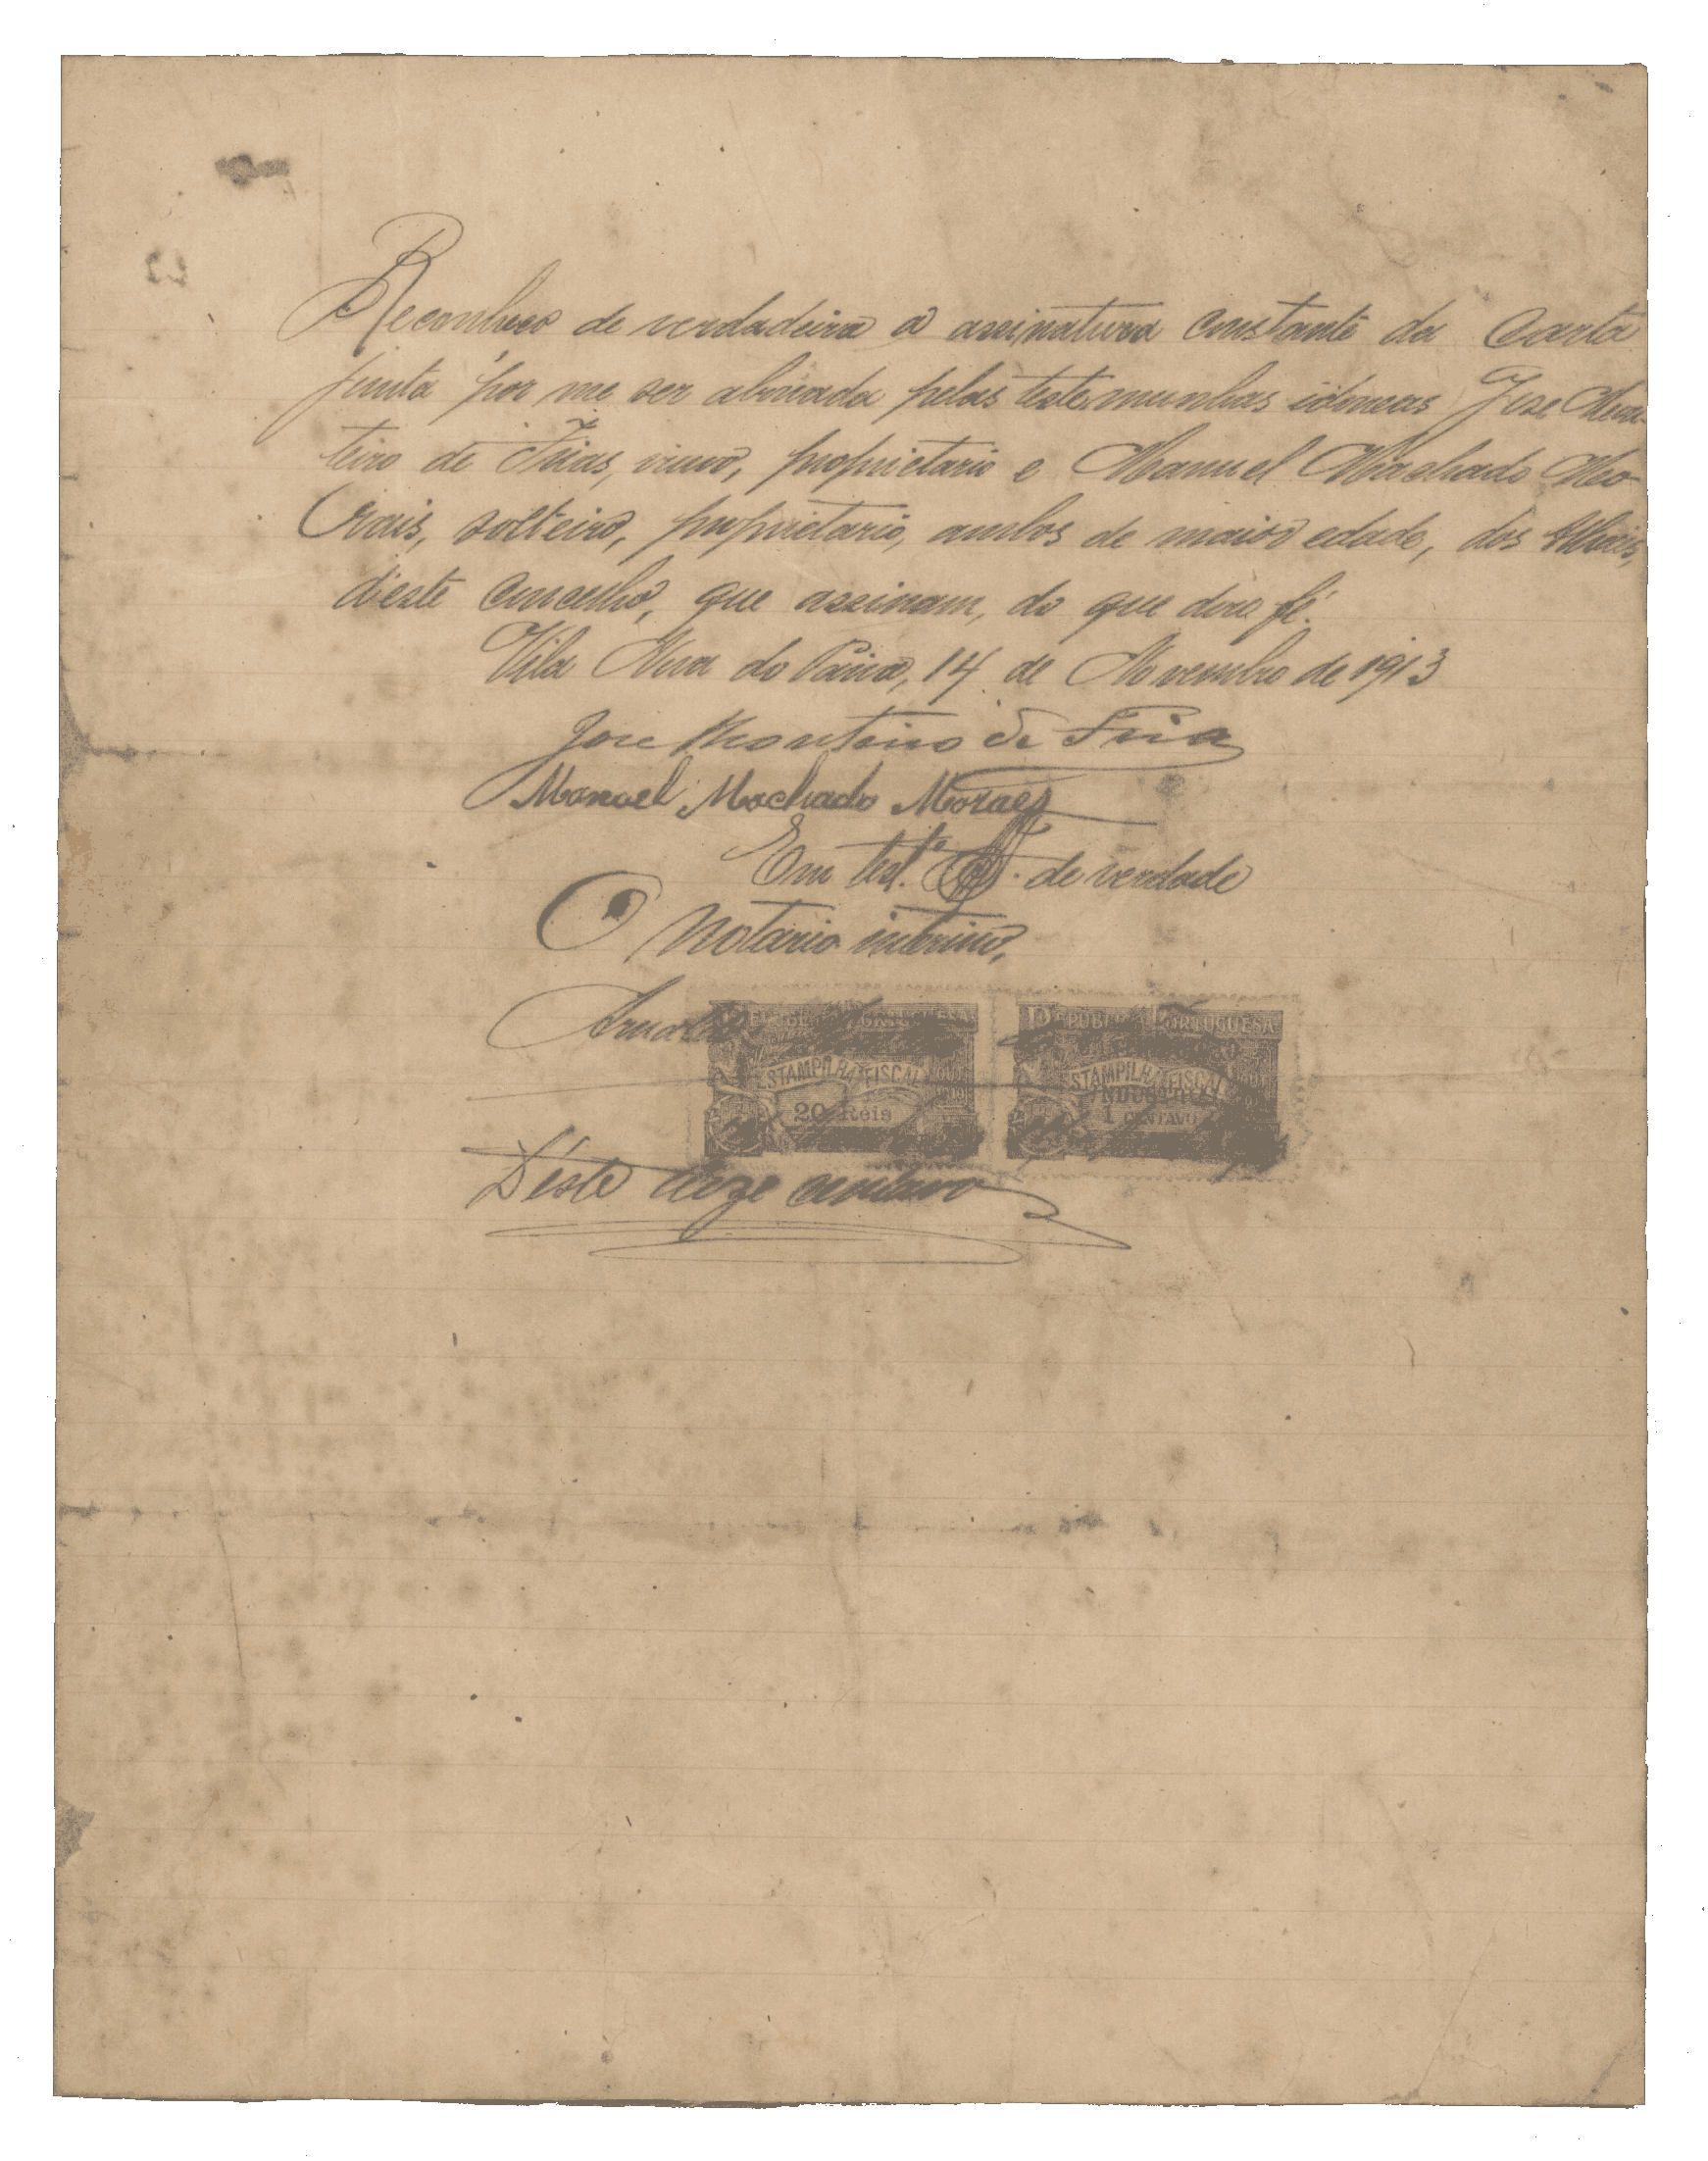 Reconheço de verdadeira a assinatura constante da carta
junta por me ser abonada pelas testemunhas idoneas José Mon-
teiro de Frias, viuvo, proprietario e Manuel Machado Mo-
rais, solteiro, proprietario, ambos de maior edade, dos
d'este concelho, que assinam, do que dou fé.
Vila Nova do Paiva, 14 de Novembro de 1913
Jose Monteiro de Frias
Manoel Machado Moraes
Em test.º de verdade
O Notario interino,
REPUBLICA PORTUGUESA REPUBLICA PORTUGUESA
ESTAMPILHA FISCAL ESTAMPILHA FISCAL
INDUSTRIAL
20 Reis 1 CENTAVO
D'este treze centavos